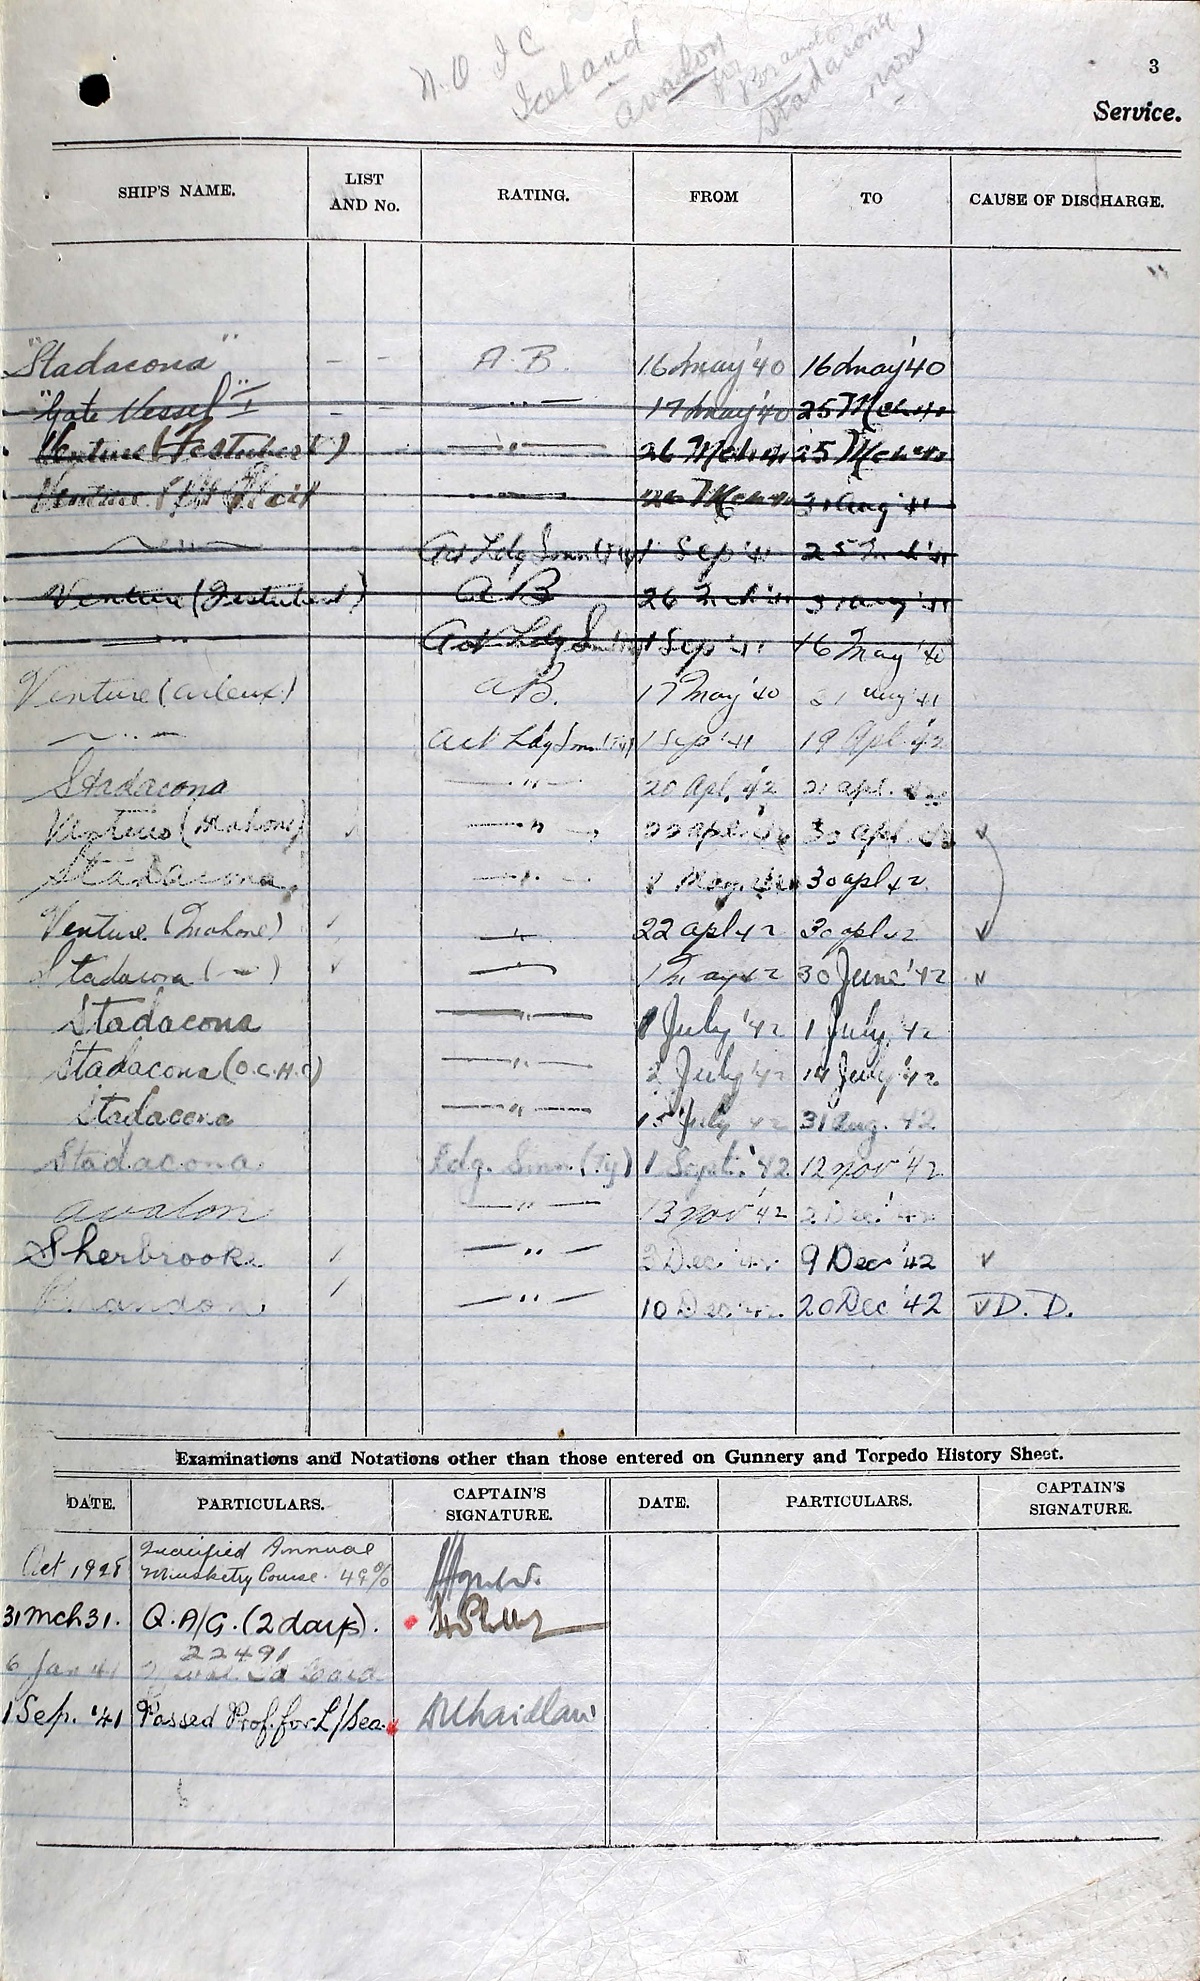 N.O I C
Iceland
Avalon
for
Brandon
Stadacona
now
3
Service.
SHIP'S NAME. LIST AND No. RATING. FROM TO CAUSE OF DISCHARGE.
"Stadacona" - - A.B. 16 May '40 16 May '40
"Gate Vessel" I - - —"— 17 May '40 25 Mch '41
Venture (Festubert) —"— 26 Mch '41 25 Mch '41
Venture —"— 31 Aug '41
—"— Act Ldg Smn (Ty) 1 Sep '41
Venture (Festubert) AB 26 Mch '41 31 Aug '41
—"— Act Ldg 1 Sep '41 16 May '40
Venture (Arleux) AB. 17 May '40 31 Aug '41
—"— Act Ldg Smn (Ty) 1 Sep '41 19 Apl '42
Stadacona —"— 20 Apl. '42 21 Apl.
Venture (Mahone) —"— 22 Apl 30 Apl
Stadacona —"— 1 May 30 Apl 42
Venture (Mahone) —"— 22 Apl 42 30 Apl 42
Stadacona (—) —"— 1 May 42 30 June '42
Stadacona —"— 1 July '42 1 July '42
Stadacona (O.C.H.) —"— 2 July '42 14 July '42
Stadacona —"— 15 July 42 31 Aug. 42
Stadacona Ldg. Smn. (Ty) 1 Sept. '42 12 Nov '42
Avalon —"— 13 Nov '42 2 Dec. '42
Sherbrooke —"— 3 Dec '42 9 Dec '42
Brandon —"— 10 Dec '42 20 Dec '42 D.D.
Examinations and Notations other than those entered on Gunnery and Torpedo History Sheet.
DATE. PARTICULARS. CAPTAIN'S SIGNATURE. DATE. PARTICULARS. CAPTAIN'S SIGNATURE.
Oct 1928 Qualified Annual
Musketry Course. 49%
31 Mch 31. Q.A/G. (2 days).
22491
6 Jan 41
1 Sep. '41 Passed Prof. for L/Sea.